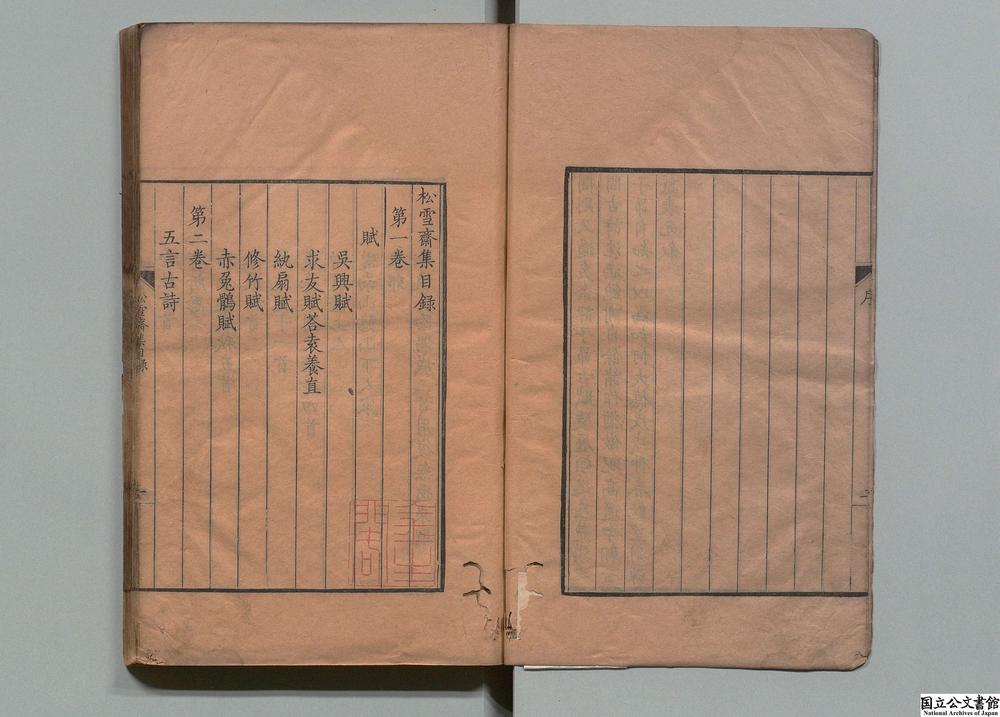 序
松雪齋集目録
第一卷
賦
吳興賦
求友賦荅袁養直
紈扇賦
修竹賦
赤兔鶻賦
第二卷
五言古詩
松雪齋集目録
国立公文書館
National Archives of Japan